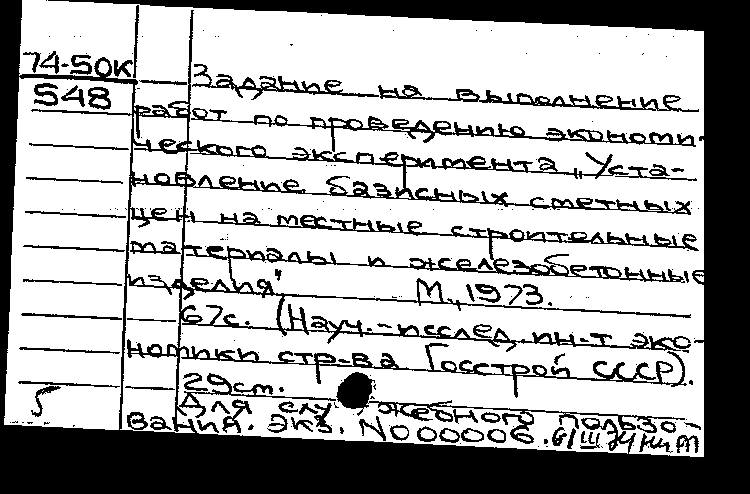 74-50К
548
Задание на выполнение
работ по проведению экономи-
ческого эксперимента „Уста-
новление базисных сметных
цен на местные строительные
материалы и железобетонные
изделия" М., 1973.
67с. (Науч.-исслед. ин-т эко-
номики стр-ва Госстрой СССР).
29см.
Для служебного пользо-
вания. Экз. N000006.
5